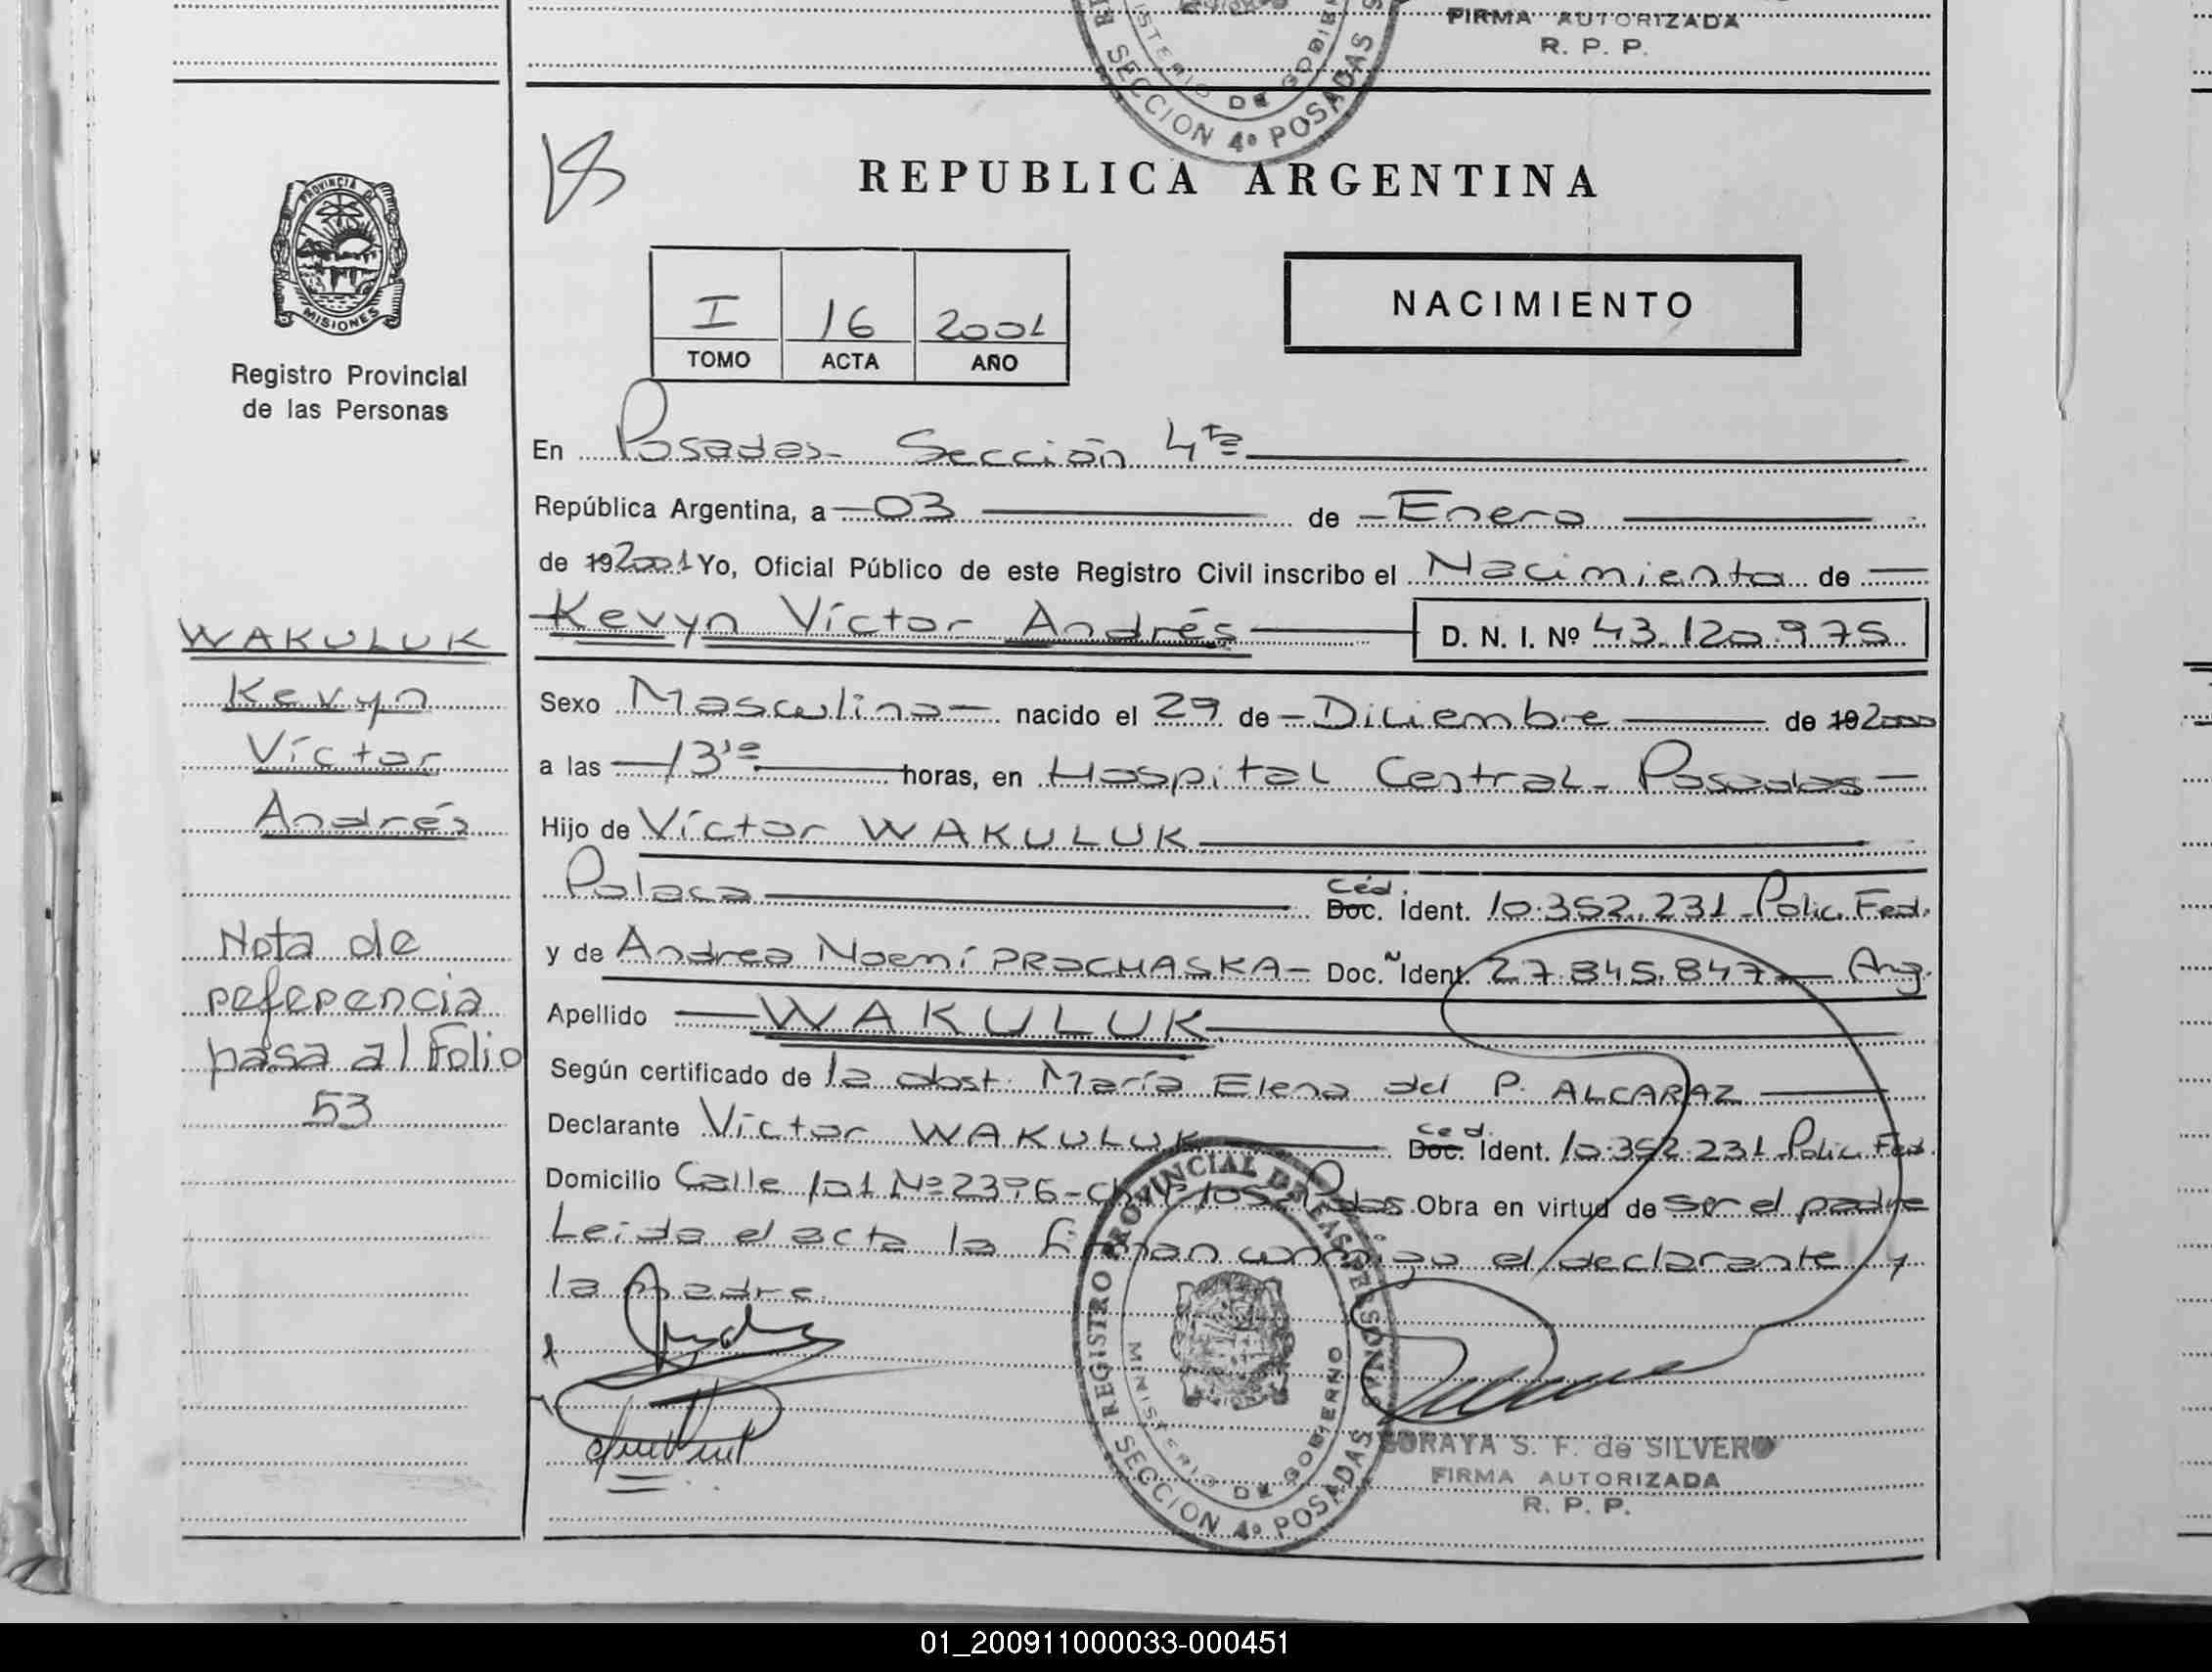 FIRMA AUTORIZADA
R. P. P.
SECCION 4º POSADAS
REPUBLICA ARGENTINA
PROVINCIA DE
MISIONES
Registro Provincial
de las Personas
I 16 2001
TOMO ACTA AÑO
NACIMIENTO
En Posadas - Sección 4ta
República Argentina, a 03 de Enero
de 192001 Yo, Oficial Público de este Registro Civil inscribo el Nacimiento de
Kevyn Víctor Andrés D. N. I. Nº 43.120.975
Sexo Masculino nacido el 29 de Diciembre de 192000
a las 13 horas, en Hospital Central - Posadas
Hijo de Víctor WAKULUK
Polaca Céd. Doc. Ident. 10.352.231 Polic. Fed.
y de Andrea Noemí PROCHASKA - Doc. N Ident. 27.845.847 Arg.
Apellido WAKULUK
Según certificado de la obst. María Elena del P. ALCARAZ
Declarante Víctor WAKULUK Ced. Doc. Ident. 10.352.231 Polic. Fed.
Domicilio Calle 101 Nº 2396 - Pdas. Obra en virtud de ser el padre
Leida el acta la firman conmigo el declarante y
la madre.
WAKULUK
Kevyn
Víctor
Andrés
Nota de
referencia
pasa al Folio
53
REGISTRO PROVINCIAL DE LAS PERSONAS
MINISTERIO DE GOBIERNO
SECCION 4º POSADAS
SORAYA S. F. de SILVERO
FIRMA AUTORIZADA
R. P. P.
01_200911000033-000451